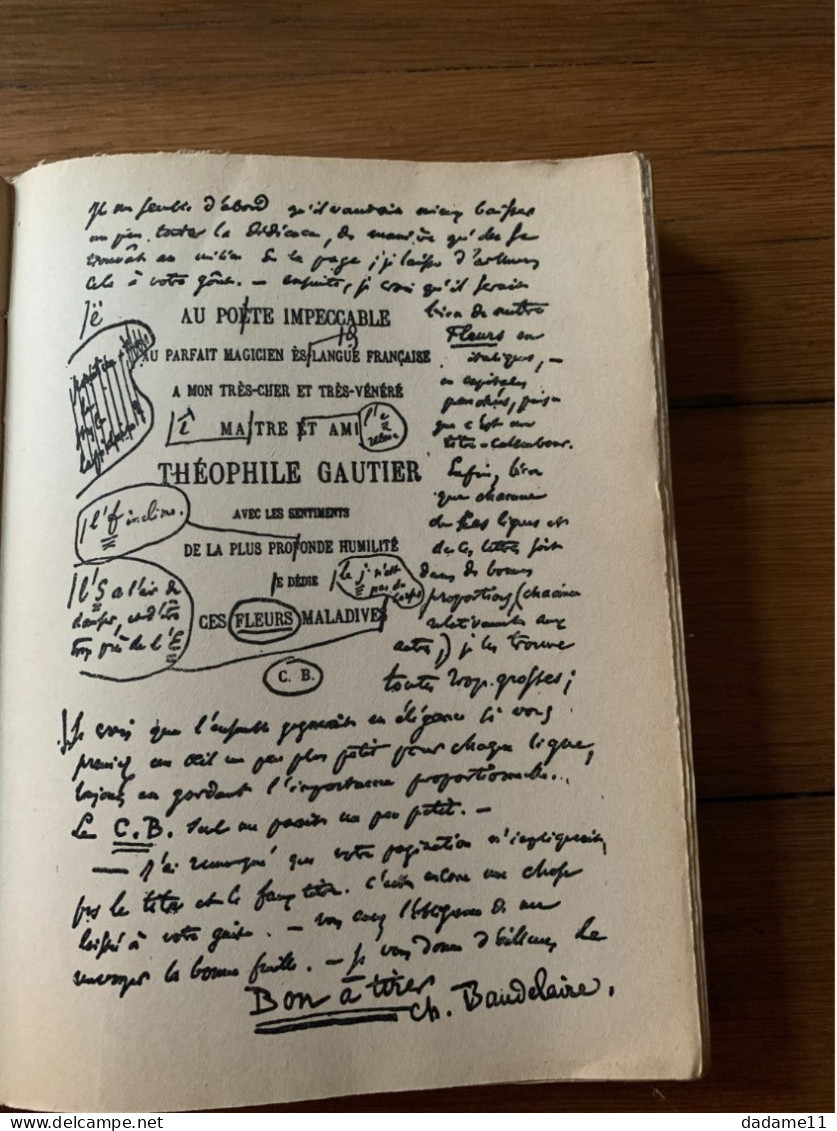 Il me semble d'abord qu'il vaudrait mieux baisser
un peu toute la dédicace, de manière qu'elle se
trouvât au milieu de la page ; je laisse d'ailleurs
cela à votre goût. — ensuite, je crois qu'il serait
bien de mettre
Fleurs en
italiques, —
en capitales
penchées, puis
que c'est un
titre-calembour.
Enfin, bien
que chacune
de ces lignes et
de ces lettres soit
dans de bonnes
proportions (chacune
relativement aux
autres,) je les trouve
toutes trop grosses ;
/ë
AU POËTE IMPECCABLE
AU PARFAIT MAGICIEN ÈS LANGUE FRANÇAISE
A MON TRÈS-CHER ET TRÈS-VÉNÉRÉ
/î
MAITRE ET AMI
THÉOPHILE GAUTIER
/ l'f incliné.
AVEC LES SENTIMENTS
DE LA PLUS PROFONDE HUMILITÉ
JE DÉDIE
/ le j n'est pas du corps
/ l'S a l'air de
danser, et d'être
trop près de l'E
CES FLEURS MALADIVES
C. B.
Je crois que l'ensemble gagnerait en élégance si vous
preniez un œil un peu plus petit pour chaque ligne,
toujours en gardant l'importance proportionnelle.
Le C.B. seul me paraît un peu petit. —
— J'ai remarqué que votre pagination n'impliquait
pas le titre et le faux titre. C'est encore une chose
laissée à votre guise. — vous avez l'obligeance de me
renvoyer la bonne feuille. — Je vous donne d'ailleurs le
Bon à tirer
Ch. Baudelaire.
dadame11